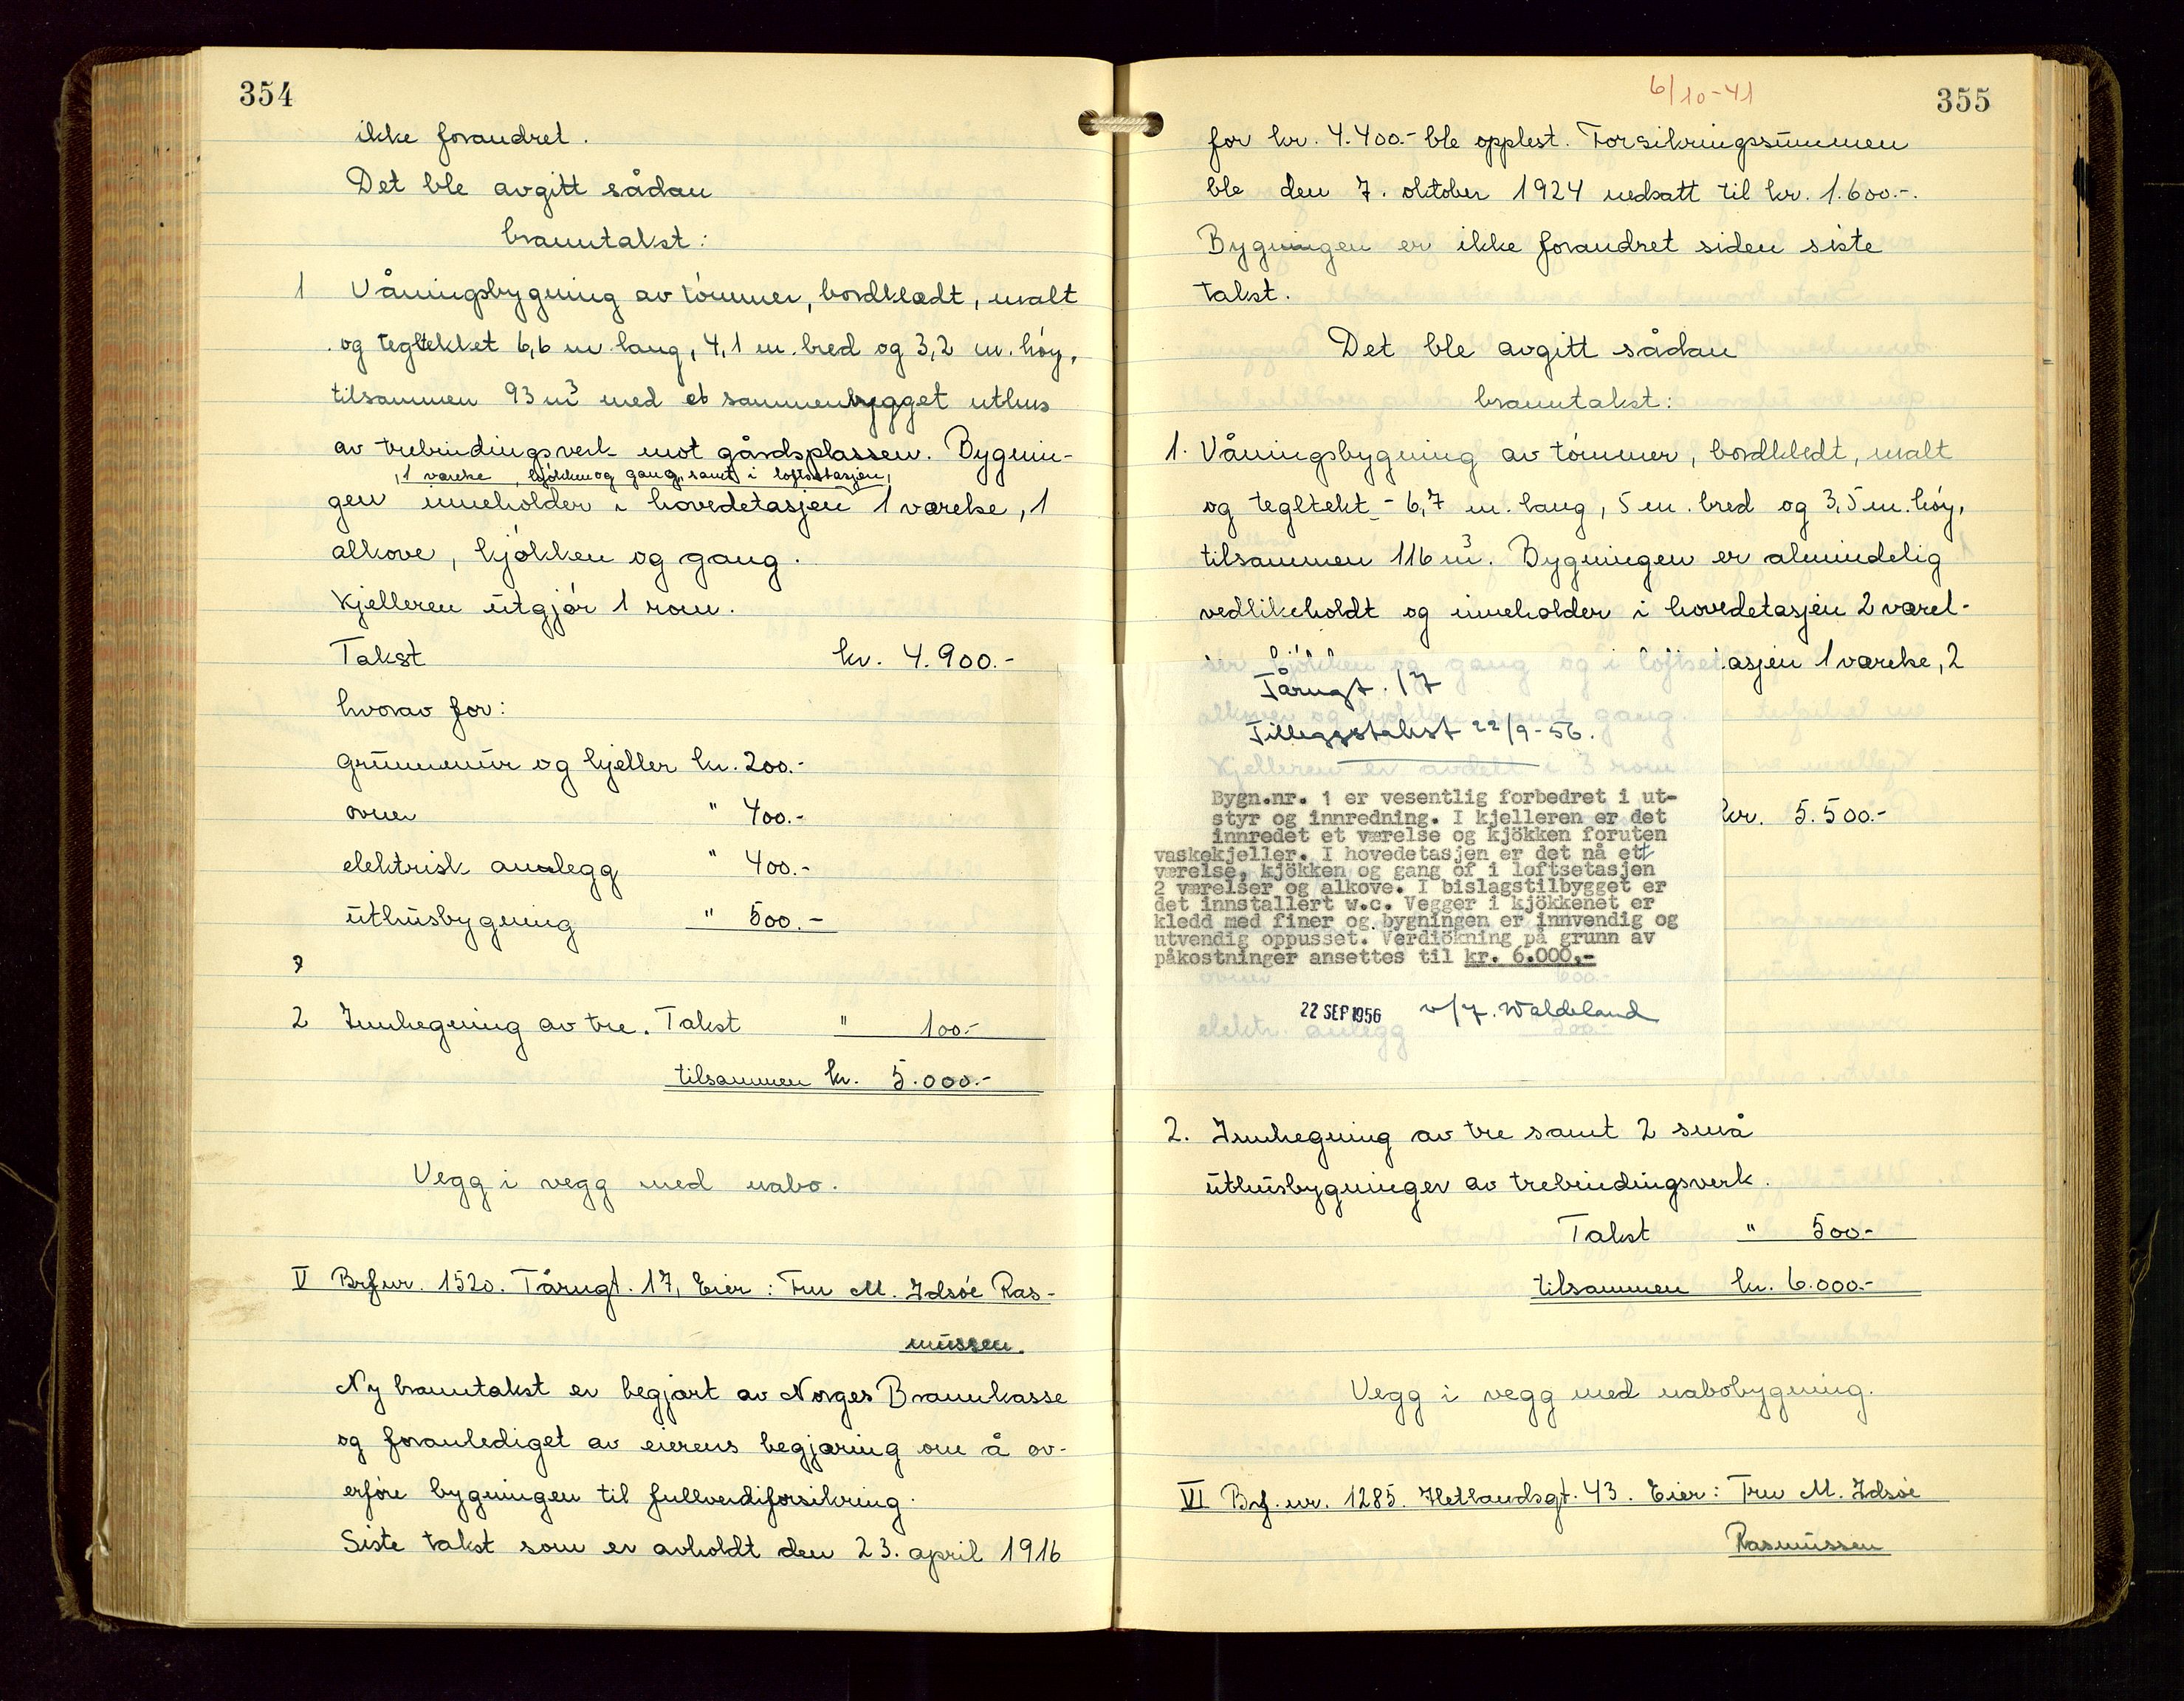 354
ikke forandret.
Det ble avgitt sådan
branntakst:
1 Våningsbygning av tömmer, bordklædt, malt
og tegltekket 6,6 m lang, 4,1 m. bred og 3,2 m. höy,
tilsammen 93 m³ med et sammenbygget uthus
av trebindingsverk mot gårdsplassen. Bygnin-
, 1 værelse, kjökken og gang, samt i loftsetasjen,
gen inneholder i hovedetasjen 1 værelse, 1
alkove, kjökken og gang.
Kjelleren utgjör 1 rom.
Takst kr. 4.900.-
hvorav for:
grunnmur og kjeller kr. 200.-
ovner " 400.-
elektrisk anlegg " 400.-
uthusbygning " 500.-
2 Innhegning av tre. Takst " 100.-
tilsammen kr. 5.000.-
Vegg i vegg med nabo.
V Brf.nr. 1520. Tårngt. 17, Eier: Fru M. Idsöe Ras-
mussen.
Ny branntakst er begjært av Norges Brannkasse
og foranlediget av eierens begjæring om å ov-
erföre bygningen til fullverdiforsikring.
Siste takst som er avholdt den 23. april 1916
6/10-41
355
for kr. 4.400.- ble opplest. Forsikringssummen
ble den 7. oktober 1924 nedsatt til kr. 1.600.-.
Bygningen er ikke forandret siden siste
takst.
Det ble avgitt sådan
branntakst:
1. Våningsbygning av tömmer, bordkledt, malt
og tegltekt - 6,7 m. lang, 5 m. bred og 3,5 m. höy,
tilsammen 116 m³. Bygningen er almindelig
vedlikeholdt og inneholder i hovedetasjen 2 værel-
ser, kjökken og gang og i loftsetasjen 1 værelse, 2
alkover og kjökken samt gang.
Kjelleren er avdelt i 3 rom
kr. 5.500.-
Tårngt. 17
Tilleggstakst 22/9-56.
Bygn.nr. 1 er vesentlig forbedret i ut-
styr og innredning. I kjelleren er det
innredet et værelse og kjökken foruten
vaskekjeller. I hovedetasjen er det nå ett
værelse, kjökken og gang of i loftsetasjen
2 værelser og alkove. I bislagstilbygget er
det innstallert w.c. Vegger i kjökkenet er
kledd med finer og bygningen er innvendig og
utvendig oppusset. Verdiökning på grunn av
påkostninger ansettes til kr. 6.000,-
ovner 600.-
22 SEP 1956 v/J. Waldeland
elektr. anlegg 500.-
2. Innhegning av tre samt 2 små
uthusbygninger av trebindingsverk.
Takst " 500.-
tilsammen kr. 6.000.-
Vegg i vegg med nabobygning.
VI Brf.nr. 1285. Hetlandsgt. 43. Eier: Fru M. Idsöe
Rasmussen